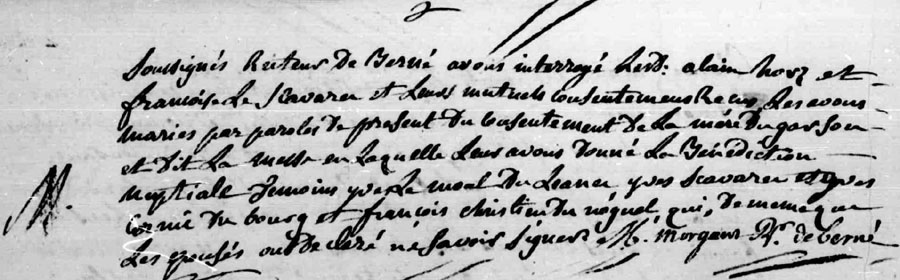 soussignés Recteur De Berné avons interrogé Lesd: alain horz et
francoise Le Scavarec et Leurs mutuels Consentemens Recus, Les avons
mariés par paroles De present Du Consentement De La mère Du garson
et Dit La Messe en Laquelle Leur avons Donné La Bénédiction
Nuptiale Temoins yves Le moal Du yves Scavarec et yves
Du bourg et françois christien Du néguel, qui, De meme que
Les epousés ont Declaré né savoir signer M. morgant Rr. de berné
M.